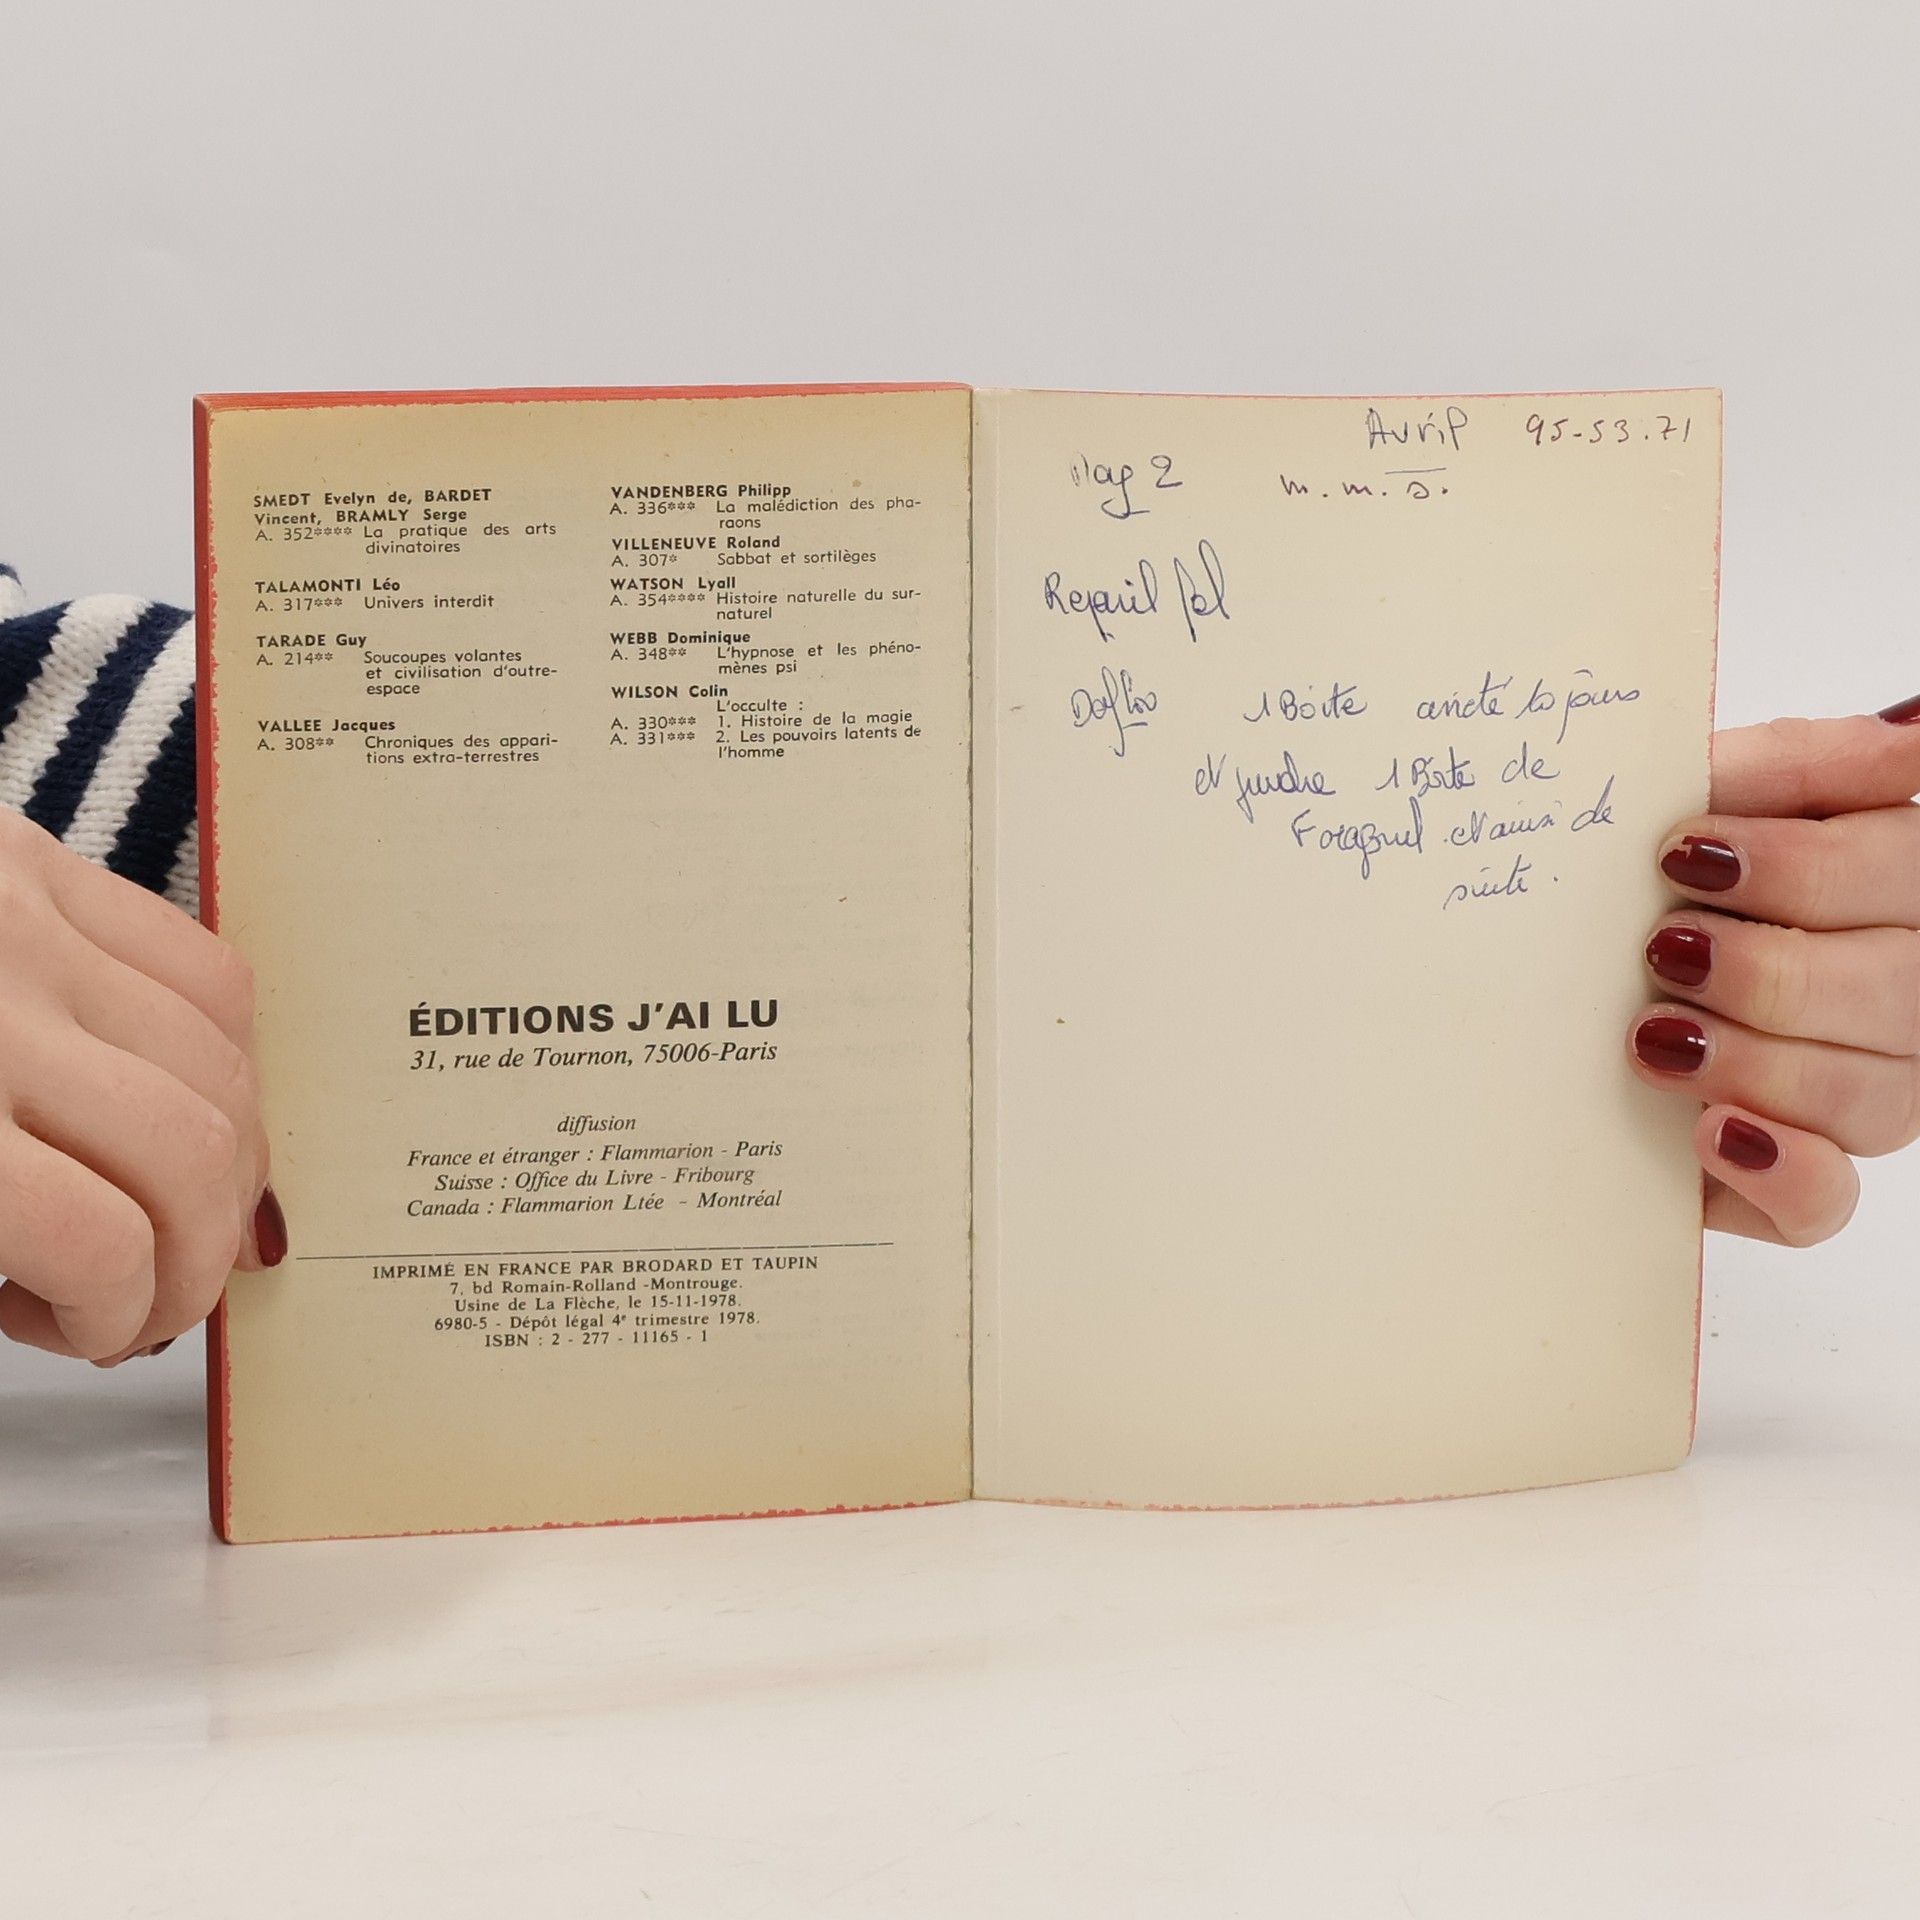 SMEDT Evelyn de, BARDET
Vincent, BRAMLY Serge
A. 352**** La pratique des arts
divinatoires
TALAMONTI Léo
A. 317*** Univers interdit
TARADE Guy
A. 214** Soucoupes volantes
et civilisation d'outre-
espace
VALLEE Jacques
A. 308** Chroniques des appari-
tions extra-terrestres
VANDENBERG Philipp
A. 336*** La malédiction des pha-
raons
VILLENEUVE Roland
A. 307* Sabbat et sortilèges
WATSON Lyall
A. 354**** Histoire naturelle du sur-
naturel
WEBB Dominique
A. 348** L'hypnose et les phéno-
mènes psi
WILSON Colin
L'occulte :
A. 330*** 1. Histoire de la magie
A. 331*** 2. Les pouvoirs latents de
l'homme
ÉDITIONS J'AI LU
31, rue de Tournon, 75006-Paris
diffusion
France et étranger : Flammarion - Paris
Suisse : Office du Livre - Fribourg
Canada : Flammarion Ltée - Montréal
IMPRIMÉ EN FRANCE PAR BRODARD ET TAUPIN
7, bd Romain-Rolland -Montrouge.
Usine de La Flèche, le 15-11-1978.
6980-5 - Dépôt légal 4e trimestre 1978.
ISBN : 2 - 277 - 11165 - 1
Avril 95-53.71
Mag 2 m.m.s.
1 Boîte jours
et 1 Boîte de
et ainsi de
suite.